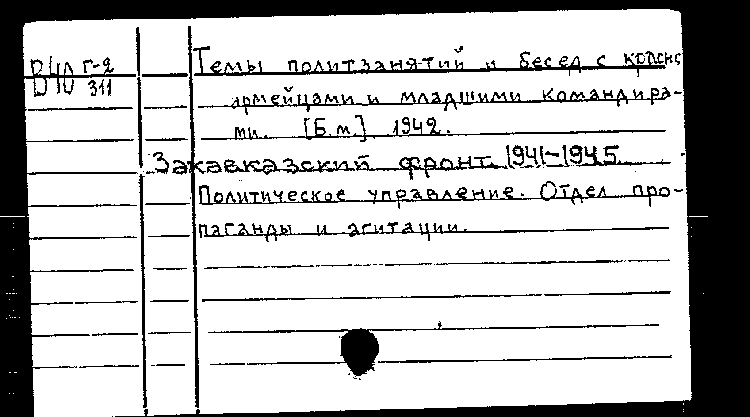 В40 Г-2
311
Темы политзанятий и бесед с красно
армейцами и младшими командира-
ми. [Б.м.] 1942.
Закавказский фронт. 1941-1945
Политическое управление. Отдел про-
паганды и агитации.